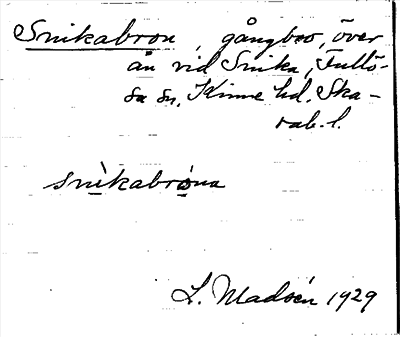 Snikabron, gångbro, över
ån vid Snika, Fullö-
sa sn, Kinne hd. Ska-
rab. l.
snìkabròna
L. Madsén 1929